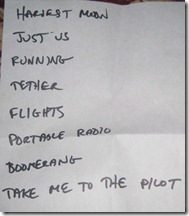 HARVEST MOON
JUST US
RUNNING
TETHER
FLIGHTS
PORTABLE RADIO
BOOMERANG
TAKE ME TO THE PILOT